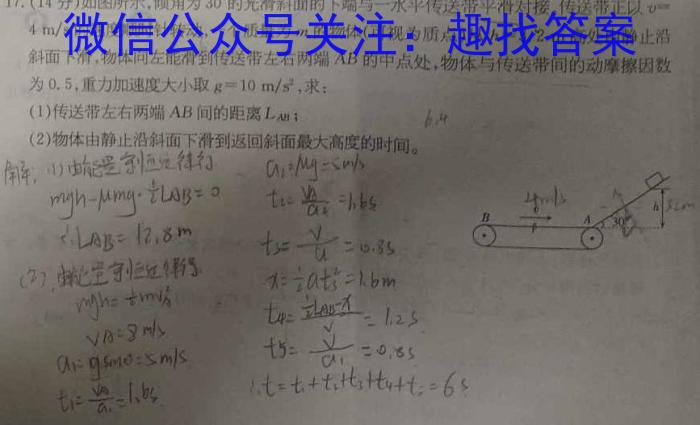 17.(14分)如图所示,倾角为30°的光滑斜面的下端与一水平传送带平滑对接,传送带正以v=
4 m/s
微信公众号关注：趣找答案
斜面下滑,物体向左能滑到传送带左右两端AB的中点处,物体与传送带间的动摩擦因数
为0.5,重力加速度大小取g=10 m/s²,求:
(1)传送带左右两端AB间的距离L_AB;
(2)物体由静止沿斜面下滑到返回斜面最大高度的时间。
6.4
解:(1)由能量守恒定律得
mgh-μmg·½LAB=0
∴LAB=12.8m
(2)由能量守恒定律得
mgh=½mv²
vA=8m/s
a₁=gsinθ=5m/s
t₁=vA/a₁=1.6s
a₂=μg=5m/s
t₂=vA/a₂=1.6s
t₃=v/a=0.8s
x=½at₃²=1.6m
t₄=(½LAB-x)/v=1.2s
t₅=v/a₁=0.8s
∴t=t₁+t₂+t₃+t₄+t₅=6s
4m/s
B
A
30°
h